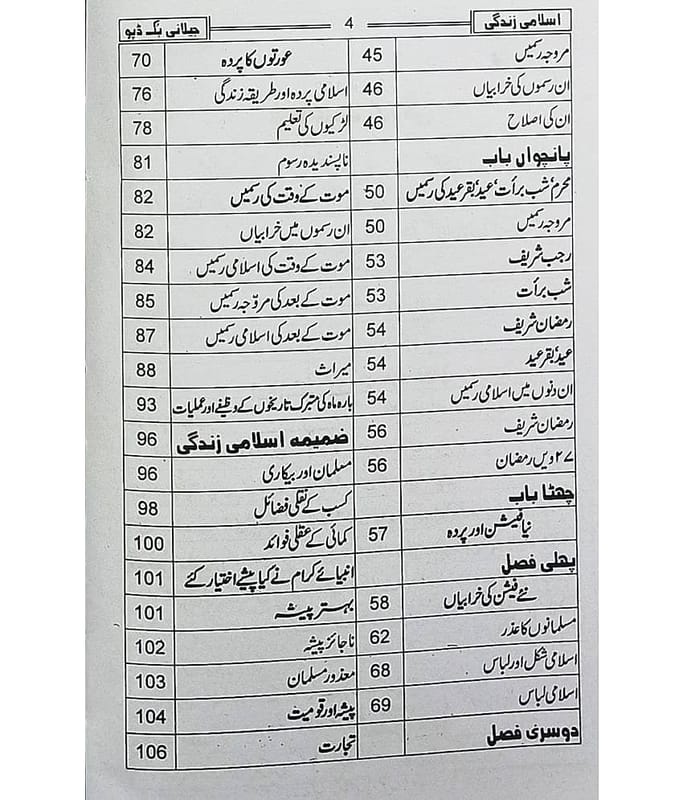 اسلامی زندگی 4 جیلانی بک ڈپو
مروجہ رسمیں 45
ان رسموں کی خرابیاں 46
ان کی اصلاح 46
پانچواں باب
محرم' شب برأت' عید' بقر عید کی رسمیں 50
مروجہ رسمیں 50
رجب شریف 53
شب برأت 53
رمضان شریف 54
عید' بقر عید 54
ان دنوں میں اسلامی رسمیں 54
رمضان شریف 56
۲۷ ویں رمضان 56
چھٹا باب
نیا فیشن اور پردہ 57
پہلی فصل
نئے فیشن کی خرابیاں 58
مسلمانوں کا عذر 62
اسلامی شکل اور لباس 68
اسلامی لباس 69
دوسری فصل
عورتوں کا پردہ 70
اسلامی پردہ اور طریقہ زندگی 76
لڑکیوں کی تعلیم 78
ناپسندیدہ رسوم 81
موت کے وقت کی رسمیں 82
ان رسموں میں خرابیاں 82
موت کے وقت کی اسلامی رسمیں 84
موت کے بعد کی مروّجہ رسمیں 85
موت کے بعد کی اسلامی رسمیں 87
میراث 88
بارہ ماہ کی متبرک تاریخوں کے وظیفے اور عملیات 93
ضمیمہ اسلامی زندگی 96
مسلمان اور بیکاری 96
کسب کے نقلی فضائل 98
کمائی کے عقلی فوائد 100
انبیائے کرام نے کیا پیشے اختیار کئے 101
بہتر پیشہ 101
ناجائز پیشہ 102
معذور مسلمان 103
پیشہ اور قومیت 104
تجارت 106